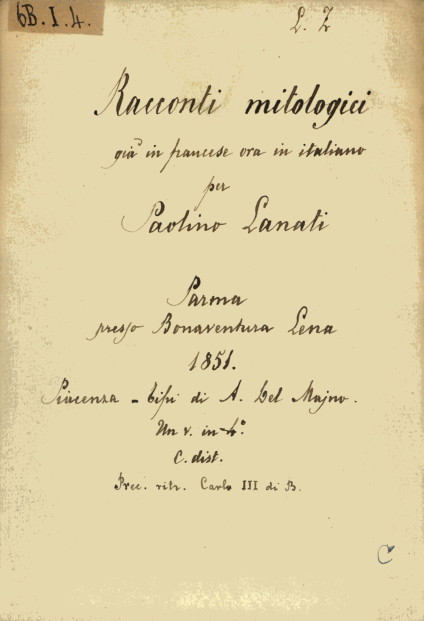 6B. I. 4.
L. Z
Racconti mitologici
già in francese ora in italiano
per
Paolino Lanati
Parma
presso Bonaventura Lena
1851.
Piacenza - Tipi di A. Del Majno.
Un v. in 4º.
C. dist.
Prec. ritr. Carlo III di B.
C